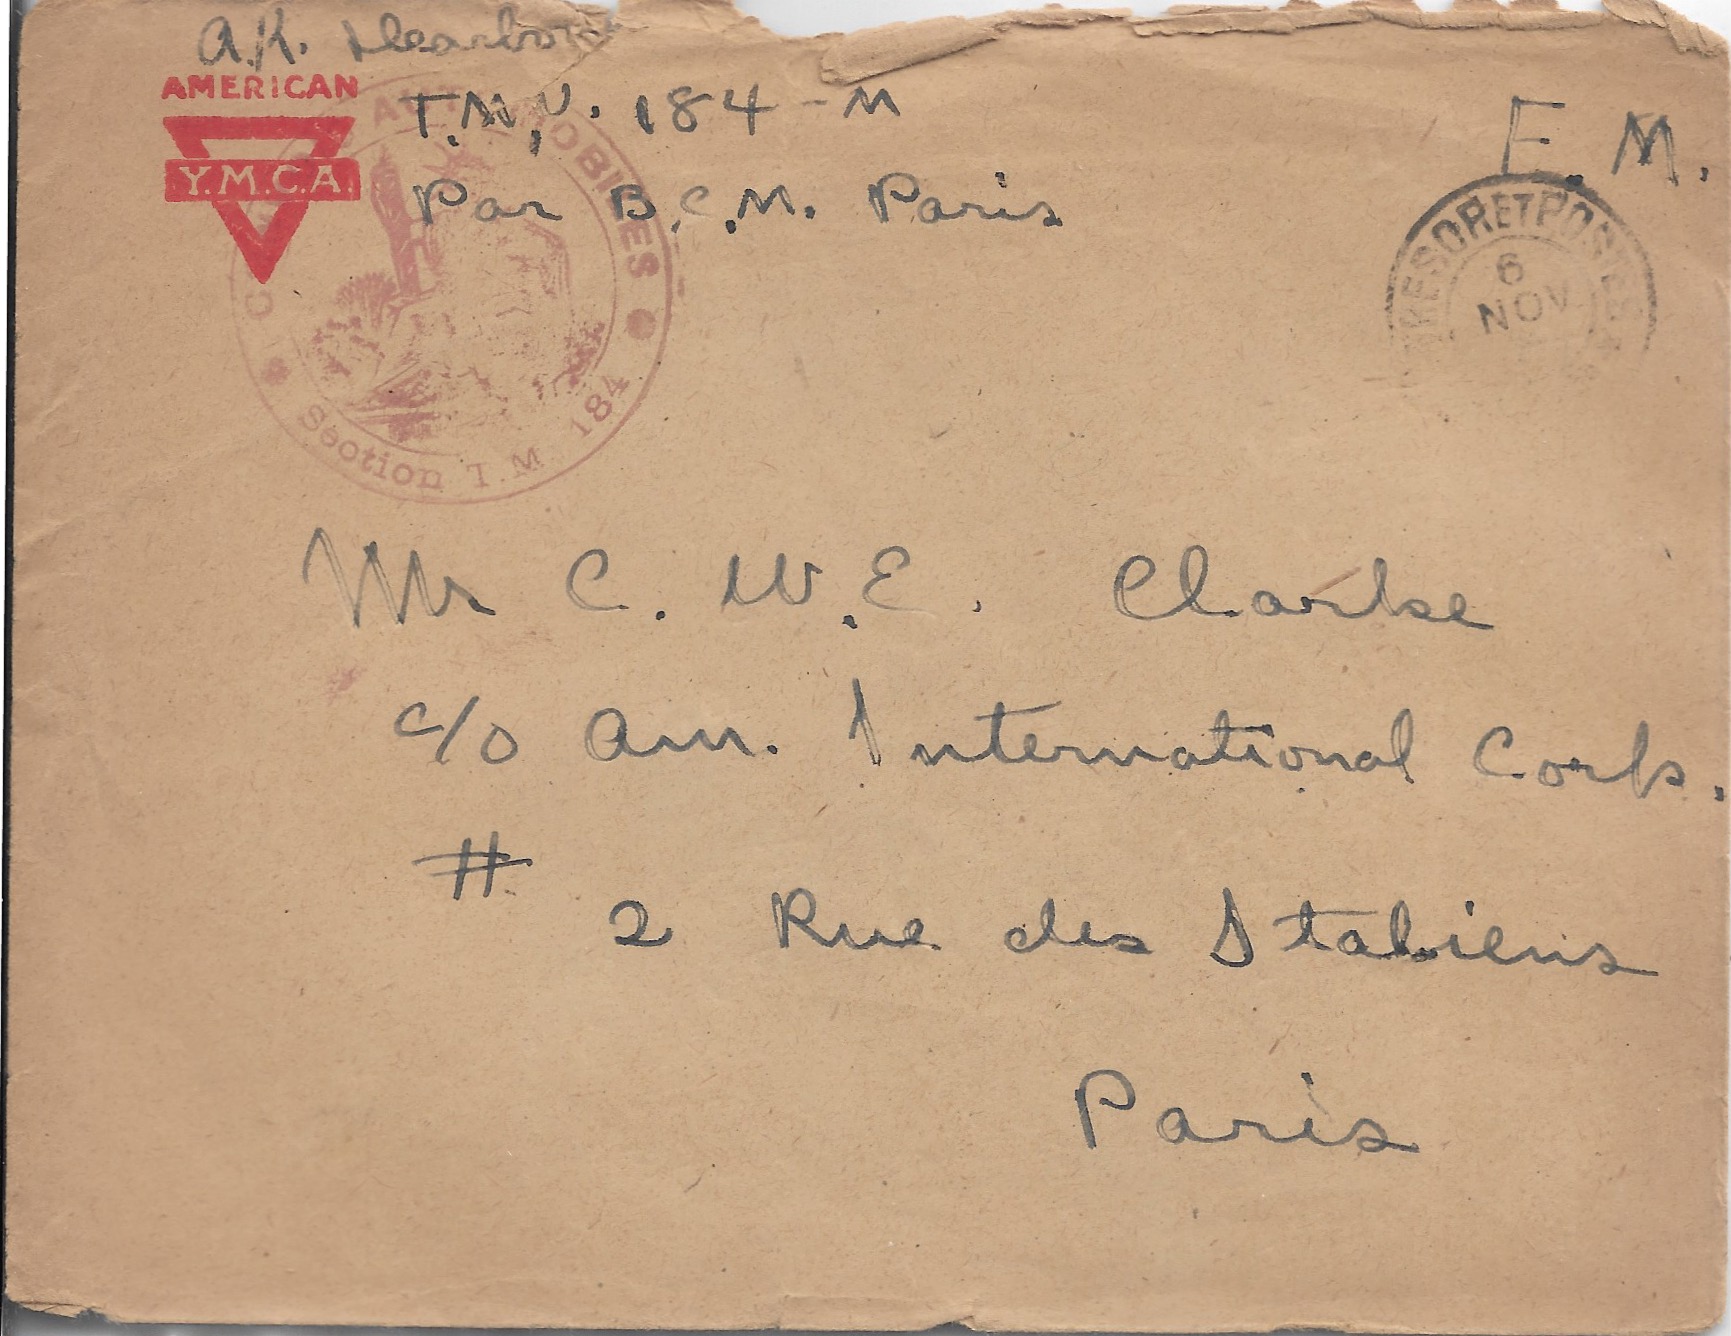 A.K. Dearborn
AMERICAN
Y.M.C.A.
T.M.U. 184 - M
Par B.C.M. Paris
F. M.
TRESOR ET POSTES
6
NOV
AUTOMOBILES
Section T.M. 184
Mr C. W. E. Clarke
c/o Am. International Corp.
#
2 Rue des Italiens
Paris